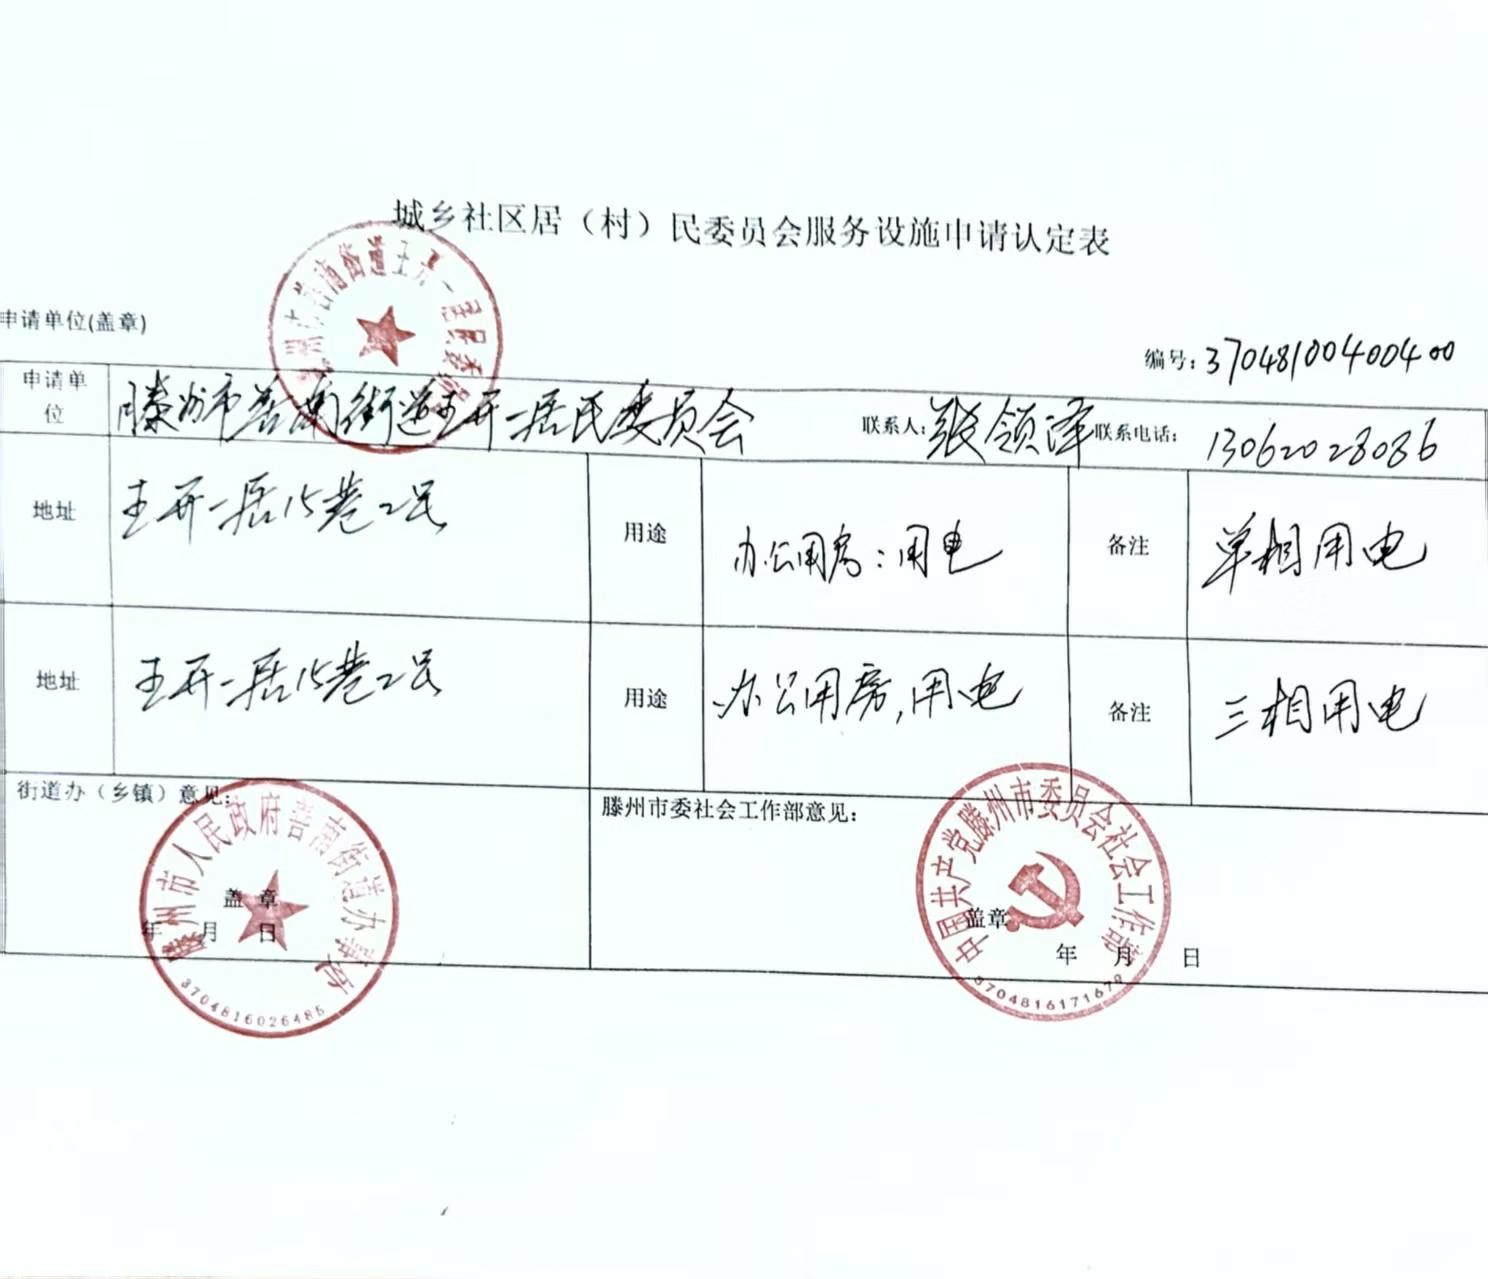 城乡社区居（村）民委员会服务设施申请认定表
申请单位(盖章)
编号：37048100400400
申请单位 滕州市善南街道王开一居民委员会 联系人：张领泽 联系电话： 13062028086
地址 王开一居15巷2号 用途 办公用房：用电 备注 单相用电
地址 王开一居15巷2号 用途 办公用房，用电 备注 三相用电
街道办（乡镇）意见： 滕州市委社会工作部意见：
滕州市人民政府善南街道办事处
盖 章
年 月 日
3704816026485
中国共产党滕州市委员会社会工作部
盖章
年 月 日
3704816171679